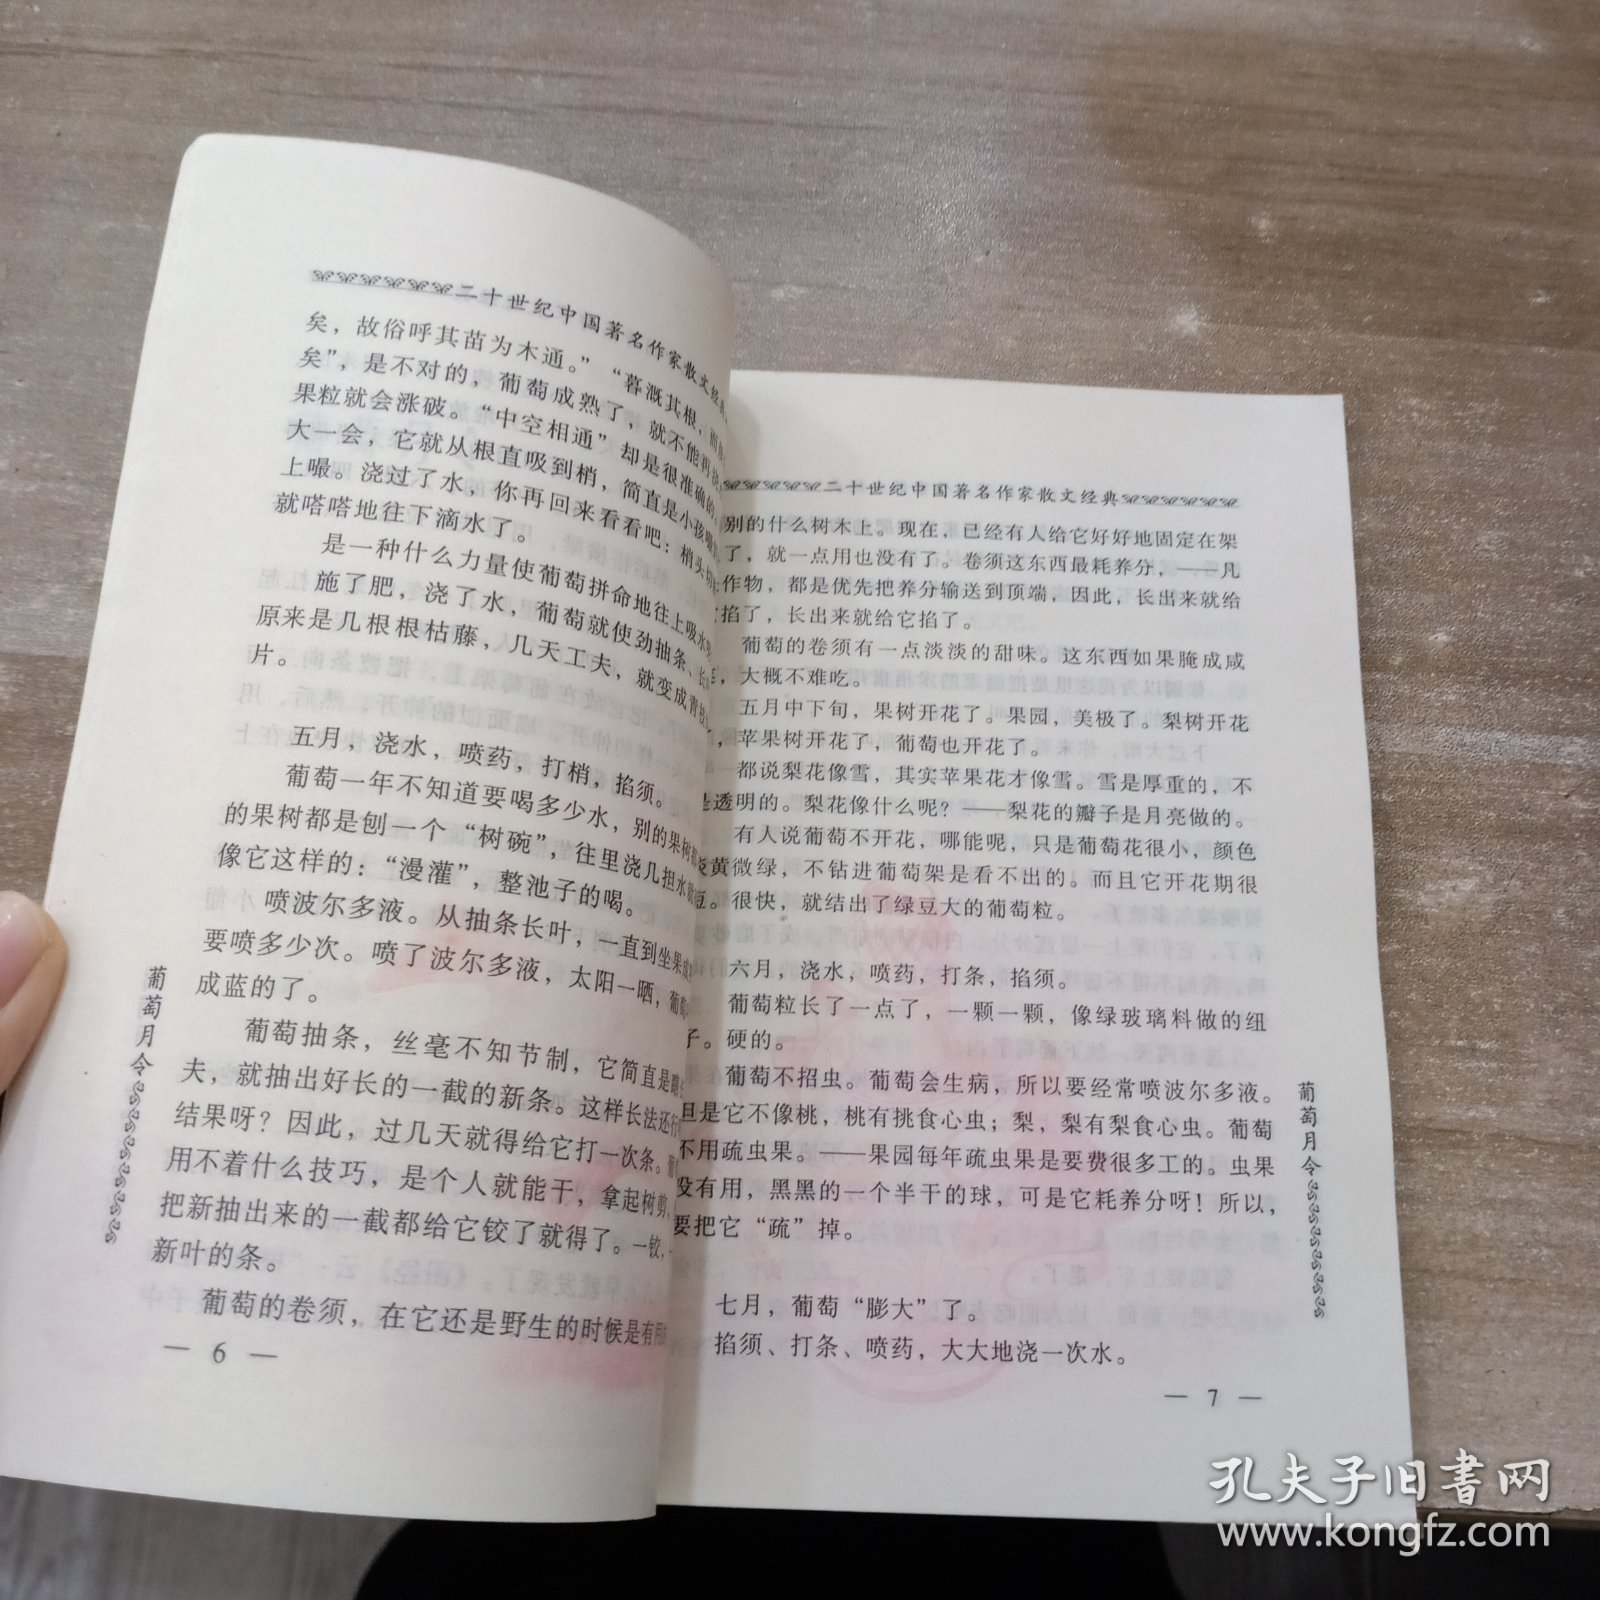 二十世纪中国著名作家散文经
矣，故俗呼其苗为木通。”“暮溉其根，而
矣”，是不对的，葡萄成熟了，就不能再浇
果粒就会涨破。“中空相通”却是很准确的
大一会，它就从根直吸到梢，简直是小孩嘬
上嘬。浇过了水，你再回来看看吧：梢头切
就嗒嗒地往下滴水了。
是一种什么力量使葡萄拼命地往上吸水
施了肥，浇了水，葡萄就使劲抽条、长
原来是几根根枯藤，几天工夫，就变成青
片。
五月，浇水，喷药，打梢，掐须。
葡萄一年不知道要喝多少水，别的果树
的果树都是刨一个“树碗”，往里浇几担水
像它这样的：“漫灌”，整池子的喝。
喷波尔多液。从抽条长叶，一直到坐果
要喷多少次。喷了波尔多液，太阳一晒，葡萄
成蓝的了。
葡萄抽条，丝毫不知节制，它简直是
夫，就抽出好长的一截的新条。这样长法还行
结果呀？因此，过几天就得给它打一次条。
用不着什么技巧，是个人就能干，拿起树剪，
把新抽出来的一截都给它铰了就得了。一铰，
新叶的条。
葡萄的卷须，在它还是野生的时候是有用
— 6 —
葡萄月令
二十世纪中国著名作家散文经典
别的什么树木上。现在，已经有人给它好好地固定在架
了，就一点用也没有了。卷须这东西最耗养分，——凡
作物，都是优先把养分输送到顶端，因此，长出来就给
掐了，长出来就给它掐了。
葡萄的卷须有一点淡淡的甜味。这东西如果腌成咸
，大概不难吃。
五月中下旬，果树开花了。果园，美极了。梨树开花
，苹果树开花了，葡萄也开花了。
都说梨花像雪，其实苹果花才像雪。雪是厚重的，不
是透明的。梨花像什么呢？——梨花的瓣子是月亮做的。
有人说葡萄不开花，哪能呢，只是葡萄花很小，颜色
黄微绿，不钻进葡萄架是看不出的。而且它开花期很
。很快，就结出了绿豆大的葡萄粒。
六月，浇水，喷药，打条，掐须。
葡萄粒长了一点了，一颗一颗，像绿玻璃料做的纽
子。硬的。
葡萄不招虫。葡萄会生病，所以要经常喷波尔多液。
但是它不像桃，桃有挑食心虫；梨，梨有梨食心虫。葡萄
不用疏虫果。——果园每年疏虫果是要费很多工的。虫果
没有用，黑黑的一个半干的球，可是它耗养分呀！所以，
要把它“疏”掉。
七月，葡萄“膨大”了。
掐须、打条、喷药，大大地浇一次水。
— 7 —
葡萄月令
孔夫子旧书网
www.kongfz.com